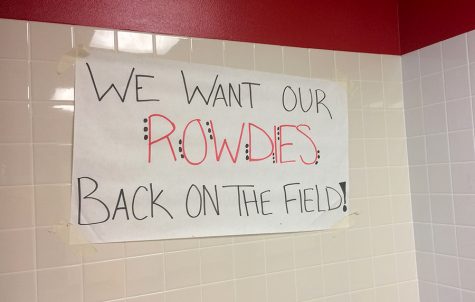 WE WANT OUR
ROWDIES
BACK ON THE FIELD!